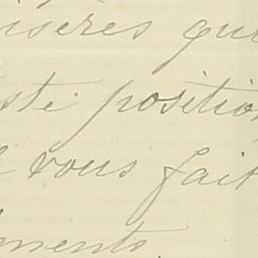 isères que
ste position
vous fait
ments.